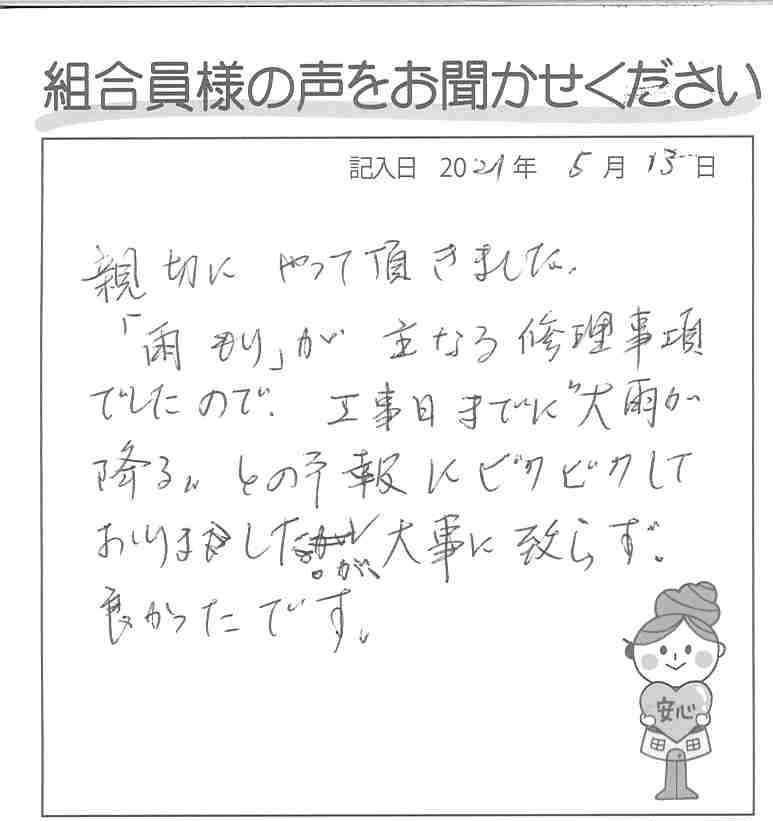 組合員様の声をお聞かせください
記入日 2021年 5月 13日
親切に やって頂きました。
「雨もり」が 主なる修理事項
でしたので、工事日までに“大雨が
降る”との予報にビクビクして
おりましたが、大事に致らず。
良かったです。
安心